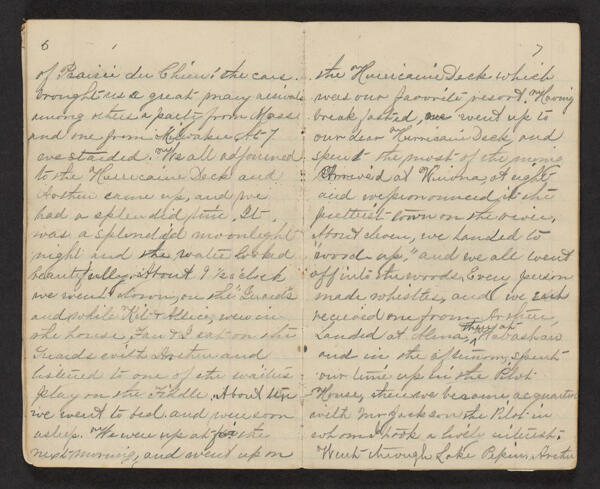 6
of Prairie du Chien: the cars
brought us a great many arrivals
among others a party from Mass
and one from Milwaukee, At 7
we started. We all adjourned
to the Hurricaine Deck and
Arthur came up, and we
had a splendid time. It
was a splendid moonlight
night and the water looked
beautifully. About 9 1/2 o'clock
we went down, on the "Guards
and while Kit & Alice, were in
the house, Fan & I sat on the
Guards with Arthur and
listened to one of the waiters
play on the Fiddle. About ten
we went to bed and were soon
asleep. We were up at six the
next morning, and went up on
7
the Hurricaine Deck which
was our favorite resort. Having
breakfasted, we went up to
our dear Hurricaine Deck, and
spent the most of the morning
Arrived at Winona, at eight
and we pronounced it the
prettiest town on the river.
About eleven, we landed to
"wood up," and we all went
off into the woods, Every person
made whistles, and we each
received one from Arthur,
Landed at Alma, then at Wabashaw
and in the afternoon, spent
our time up in the Pilot
House, there we became acquainted
with Mr Jackson the Pilot in
whom I took a lively interest.
Went through Lake Pepin, Arthur